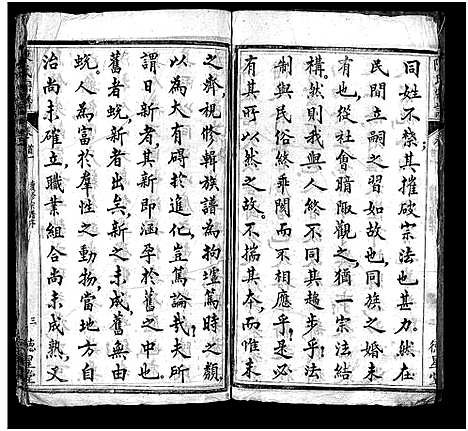 同姓不禁其摧破宗法也甚力然在
民間立嗣之習如故也同族之婚未
有也從社會暗陬觀之猶一宗法結
構然豈我與人俱不同其趨步乎法
制與民俗終乖閡而不相應乎是蓋
有其所以然之故不揣其本而惟末
之齊視修輯族譜為拘墟篤時之類
以為大有碍於進化豈篤論哉夫所
謂日新者新即涵孕於舊之中未有
舊者蛻新者出矣新之未成舊無由
蛻人為富於羣性之動物當地方自
治尚未確立職業組合尚未成熟又
卷首
三
德星堂